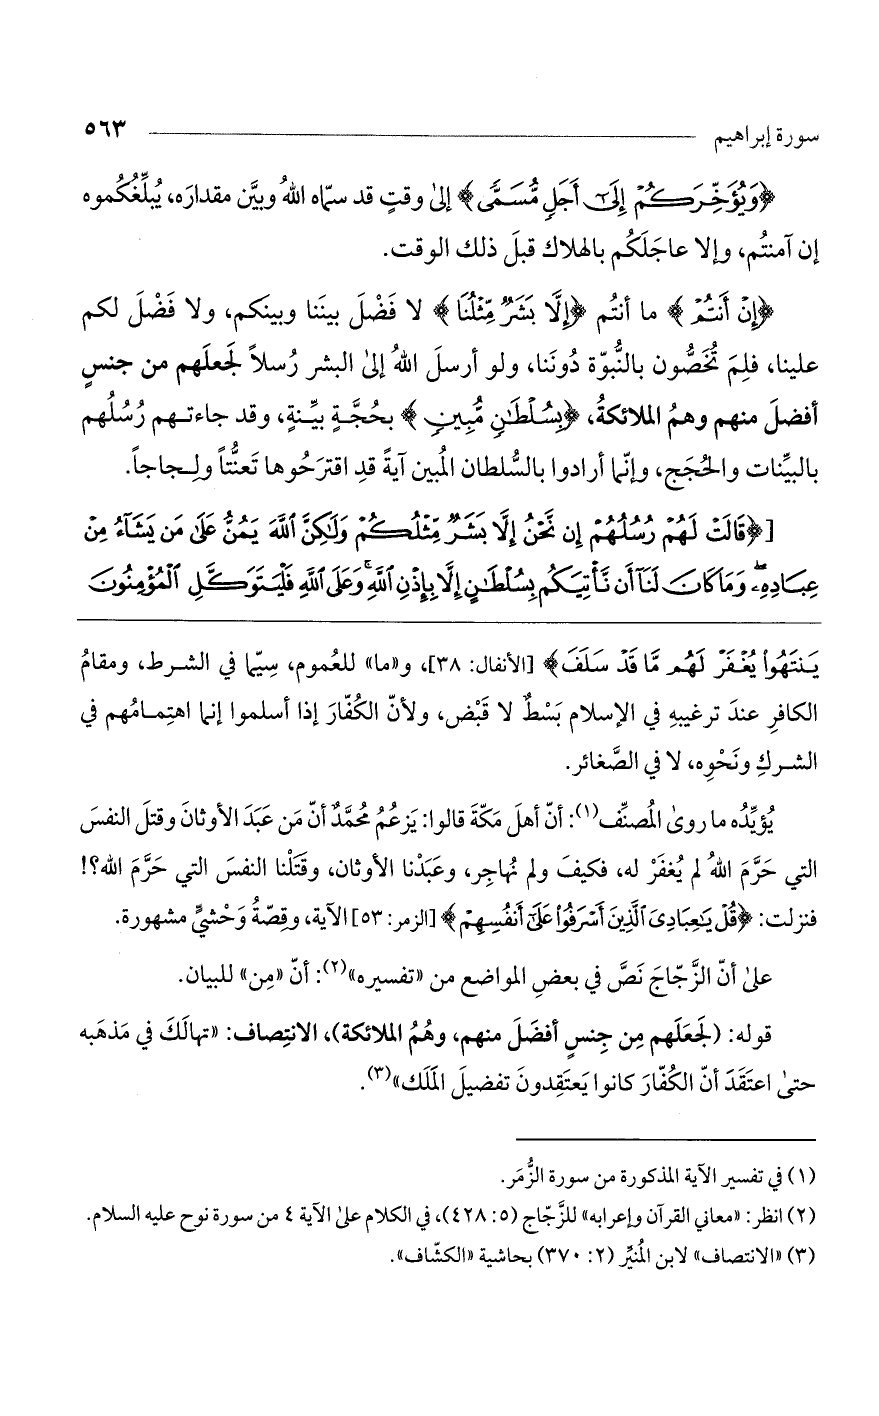 سورة إبراهيم ٥٦٣
﴿وَيُؤَخِّرَكُمْ إِلَىٰٓ أَجَلٍ مُّسَمًّى﴾ إلىٰ وقتٍ قد سمّاه اللهُ وبيَّن مقدارَه، يُبلِّغُكُموه
إن آمنتُم، وإلا عاجَلَكُم بالهلاك قبلَ ذلك الوقت.
﴿إِنْ أَنتُمْ﴾ ما أنتُم ﴿إِلَّا بَشَرٌ مِّثْلُنَا﴾ لا فَضْلَ بينَنا وبينَكم، ولا فَضْلَ لكم
علينا، فلِمَ تُخَصُّون بالنُّبوّة دُونَنا، ولو أرسلَ اللهُ إلىٰ البشر رُسلاً لَجعلَهم من جنسٍ
أفضلَ منهم وهمُ الملائكةُ، ﴿بِسُلْطَٰنٍ مُّبِينٍ﴾ بحُجَّةٍ بيِّنةٍ، وقد جاءتهم رُسُلُهم
بالبيِّنات والحُجَج، وإنّما أرادوا بالسُّلطان المُبين آيةً قدِ اقترَحُوها تَعنُّتاً ولِجاجاً.
[﴿قَالَتْ لَهُمْ رُسُلُهُمْ إِن نَّحْنُ إِلَّا بَشَرٌ مِّثْلُكُمْ وَلَٰكِنَّ ٱللَّهَ يَمُنُّ عَلَىٰ مَن يَشَآءُ مِنْ
عِبَادِهِۦ ۖ وَمَا كَانَ لَنَآ أَن نَّأْتِيَكُم بِسُلْطَٰنٍ إِلَّا بِإِذْنِ ٱللَّهِ ۚ وَعَلَى ٱللَّهِ فَلْيَتَوَكَّلِ ٱلْمُؤْمِنُونَ
يَنتَهُوا۟ يُغْفَرْ لَهُم مَّا قَدْ سَلَفَ﴾ [الأنفال: ٣٨]، و«ما» للعُموم، سِيّما في الشرط، ومقامُ
الكافرِ عندَ ترغيبِهِ في الإسلام بَسْطٌ لا قَبْض، ولأنّ الكُفّارَ إذا أسلموا إنما اهتِمامُهم في
الشركِ ونَحْوِه، لا في الصَّغائر.
يُؤيِّدُه ما روىٰ المُصنِّف(١): أنّ أهلَ مكّةَ قالوا: يَزعُمُ مُحمَّدٌ أنّ مَن عَبَدَ الأوثانَ وقتلَ النفسَ
التي حَرَّمَ اللهُ لم يُغفَرْ له، فكيفَ ولم نُهاجِر، وعَبَدْنا الأوثان، وقَتَلْنا النفسَ التي حَرَّمَ الله؟!
فنزلت: ﴿قُلْ يَٰعِبَادِىَ ٱلَّذِينَ أَسْرَفُوا۟ عَلَىٰٓ أَنفُسِهِمْ﴾ [الزمر: ٥٣] الآية، وقِصّةُ وَحْشيٍّ مشهورة.
علىٰ أنّ الزَّجّاجَ نَصَّ في بعضِ المواضع من «تفسيره»(٢): أنّ «مِن» للبيان.
قوله: (لَجَعَلَهم مِن جِنسٍ أفضَلَ منهم، وهُمُ الملائكة)، الانتِصاف: «تهالَكَ في مَذهَبه
حتىٰ اعتَقَدَ أنّ الكُفّارَ كانوا يَعتَقِدونَ تفضيلَ المَلَك»(٣).
(١) في تفسير الآية المذكورة من سورة الزُّمَر.
(٢) انظر: «معاني القرآن وإعرابه» للزَّجّاج (٥: ٤٢٨)، في الكلام علىٰ الآية ٤ من سورة نوح عليه السلام.
(٣) «الانتصاف» لابن المُنيِّر (٢: ٣٧٠) بحاشية «الكشّاف».